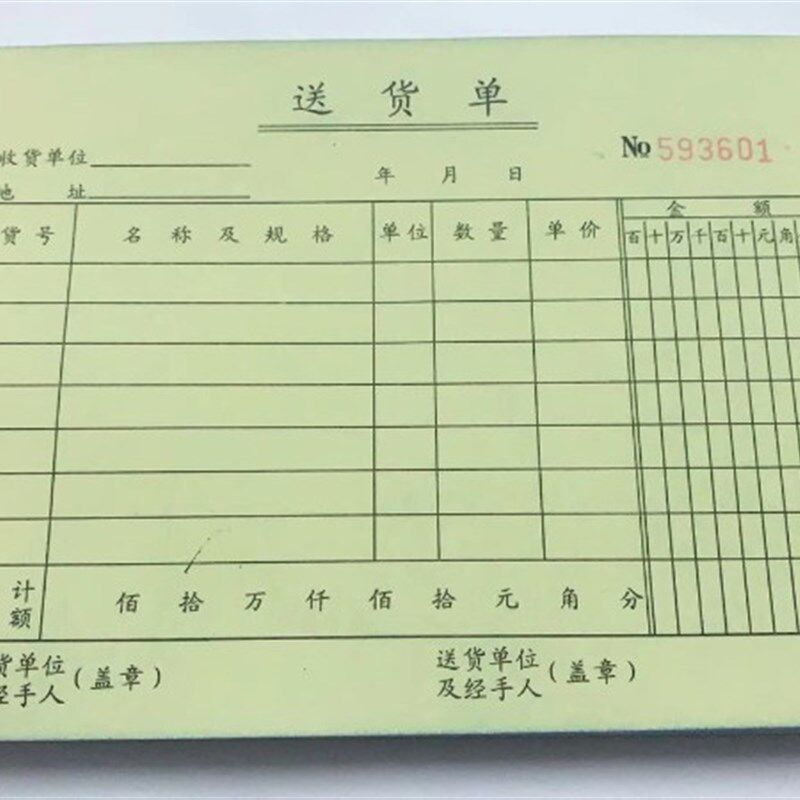 送货单
收货单位
No 593601
地址
年 月 日
货号 名称及规格 单位 数量 单价 金额
百十万千百十元角
计额 佰拾万仟佰拾元角分
货单位
经手人
(盖章)
送货单位
及经手人
(盖章)